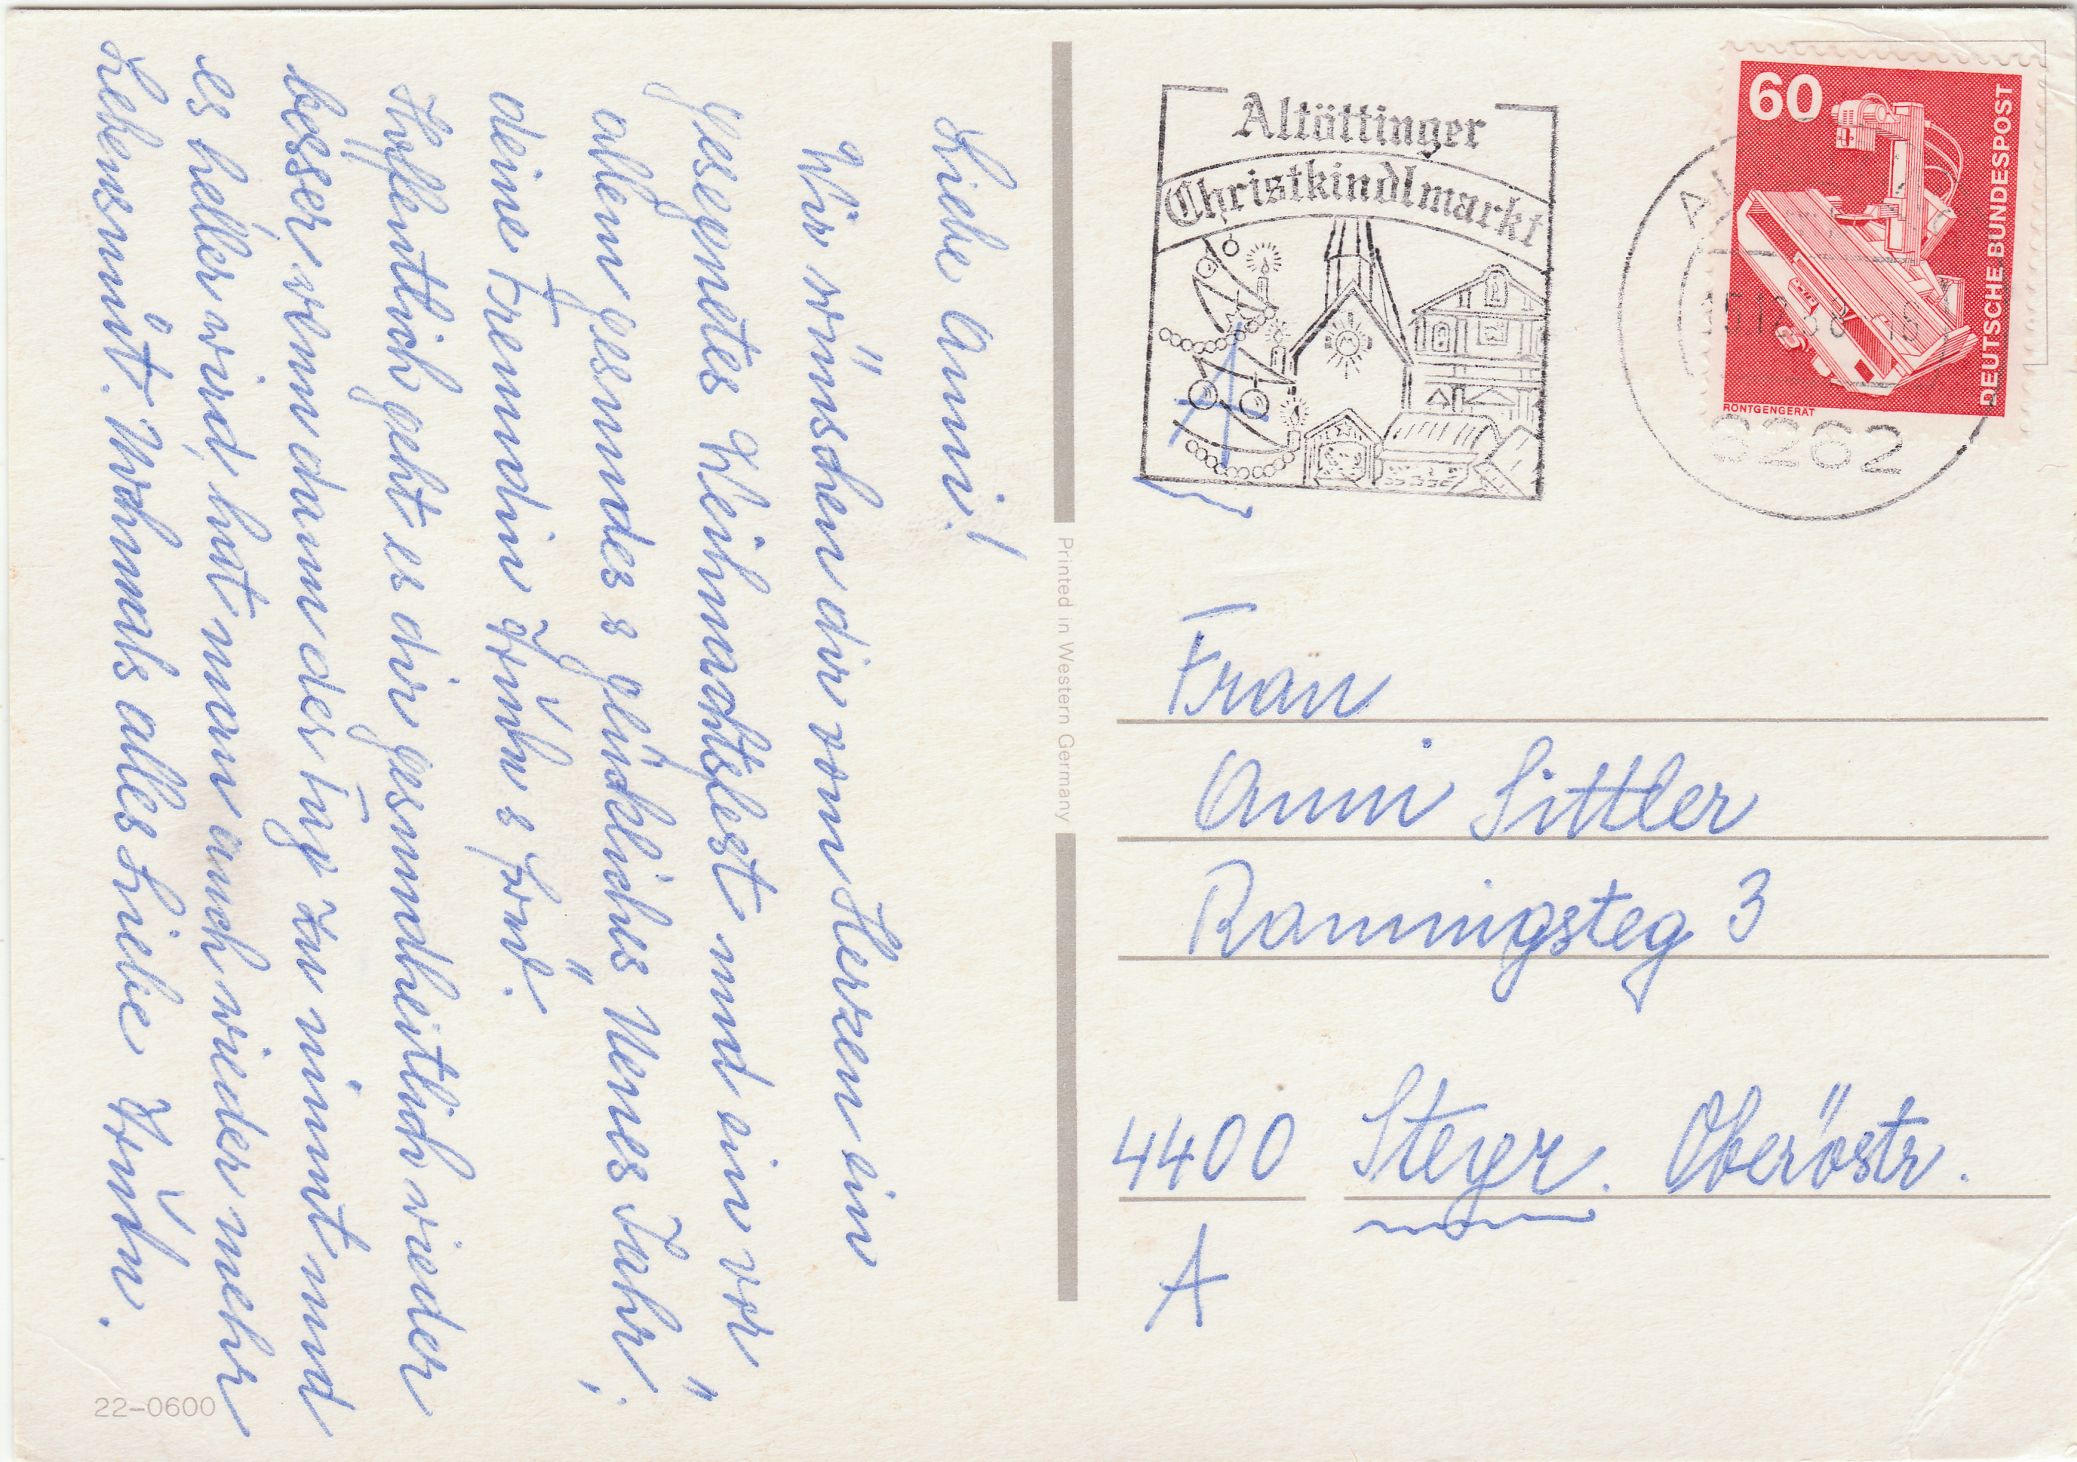 Liebe Anni!
Wir wünschen dir vom Herzen ein
gesegnetes Weihnachtsfest und ein vor
allem gesundes u glückliches Neues Jahr;
deine Freundin
Hoffentlich geht es dir gesundheitlich wieder
besser wenn dann der Tag zu nimmt und
es heller wird, hat man auch wieder mehr
Lebensmut. Nochmals alles Liebe
22-0600
Printed in Western Germany
Altöttinger
Christkindlmarkt
60
DEUTSCHE BUNDESPOST
RÖNTGENGERÄT
8262
Frau
Anni Sittler
Ramingsteg 3
4400 Steyr. Oberöstr.
A